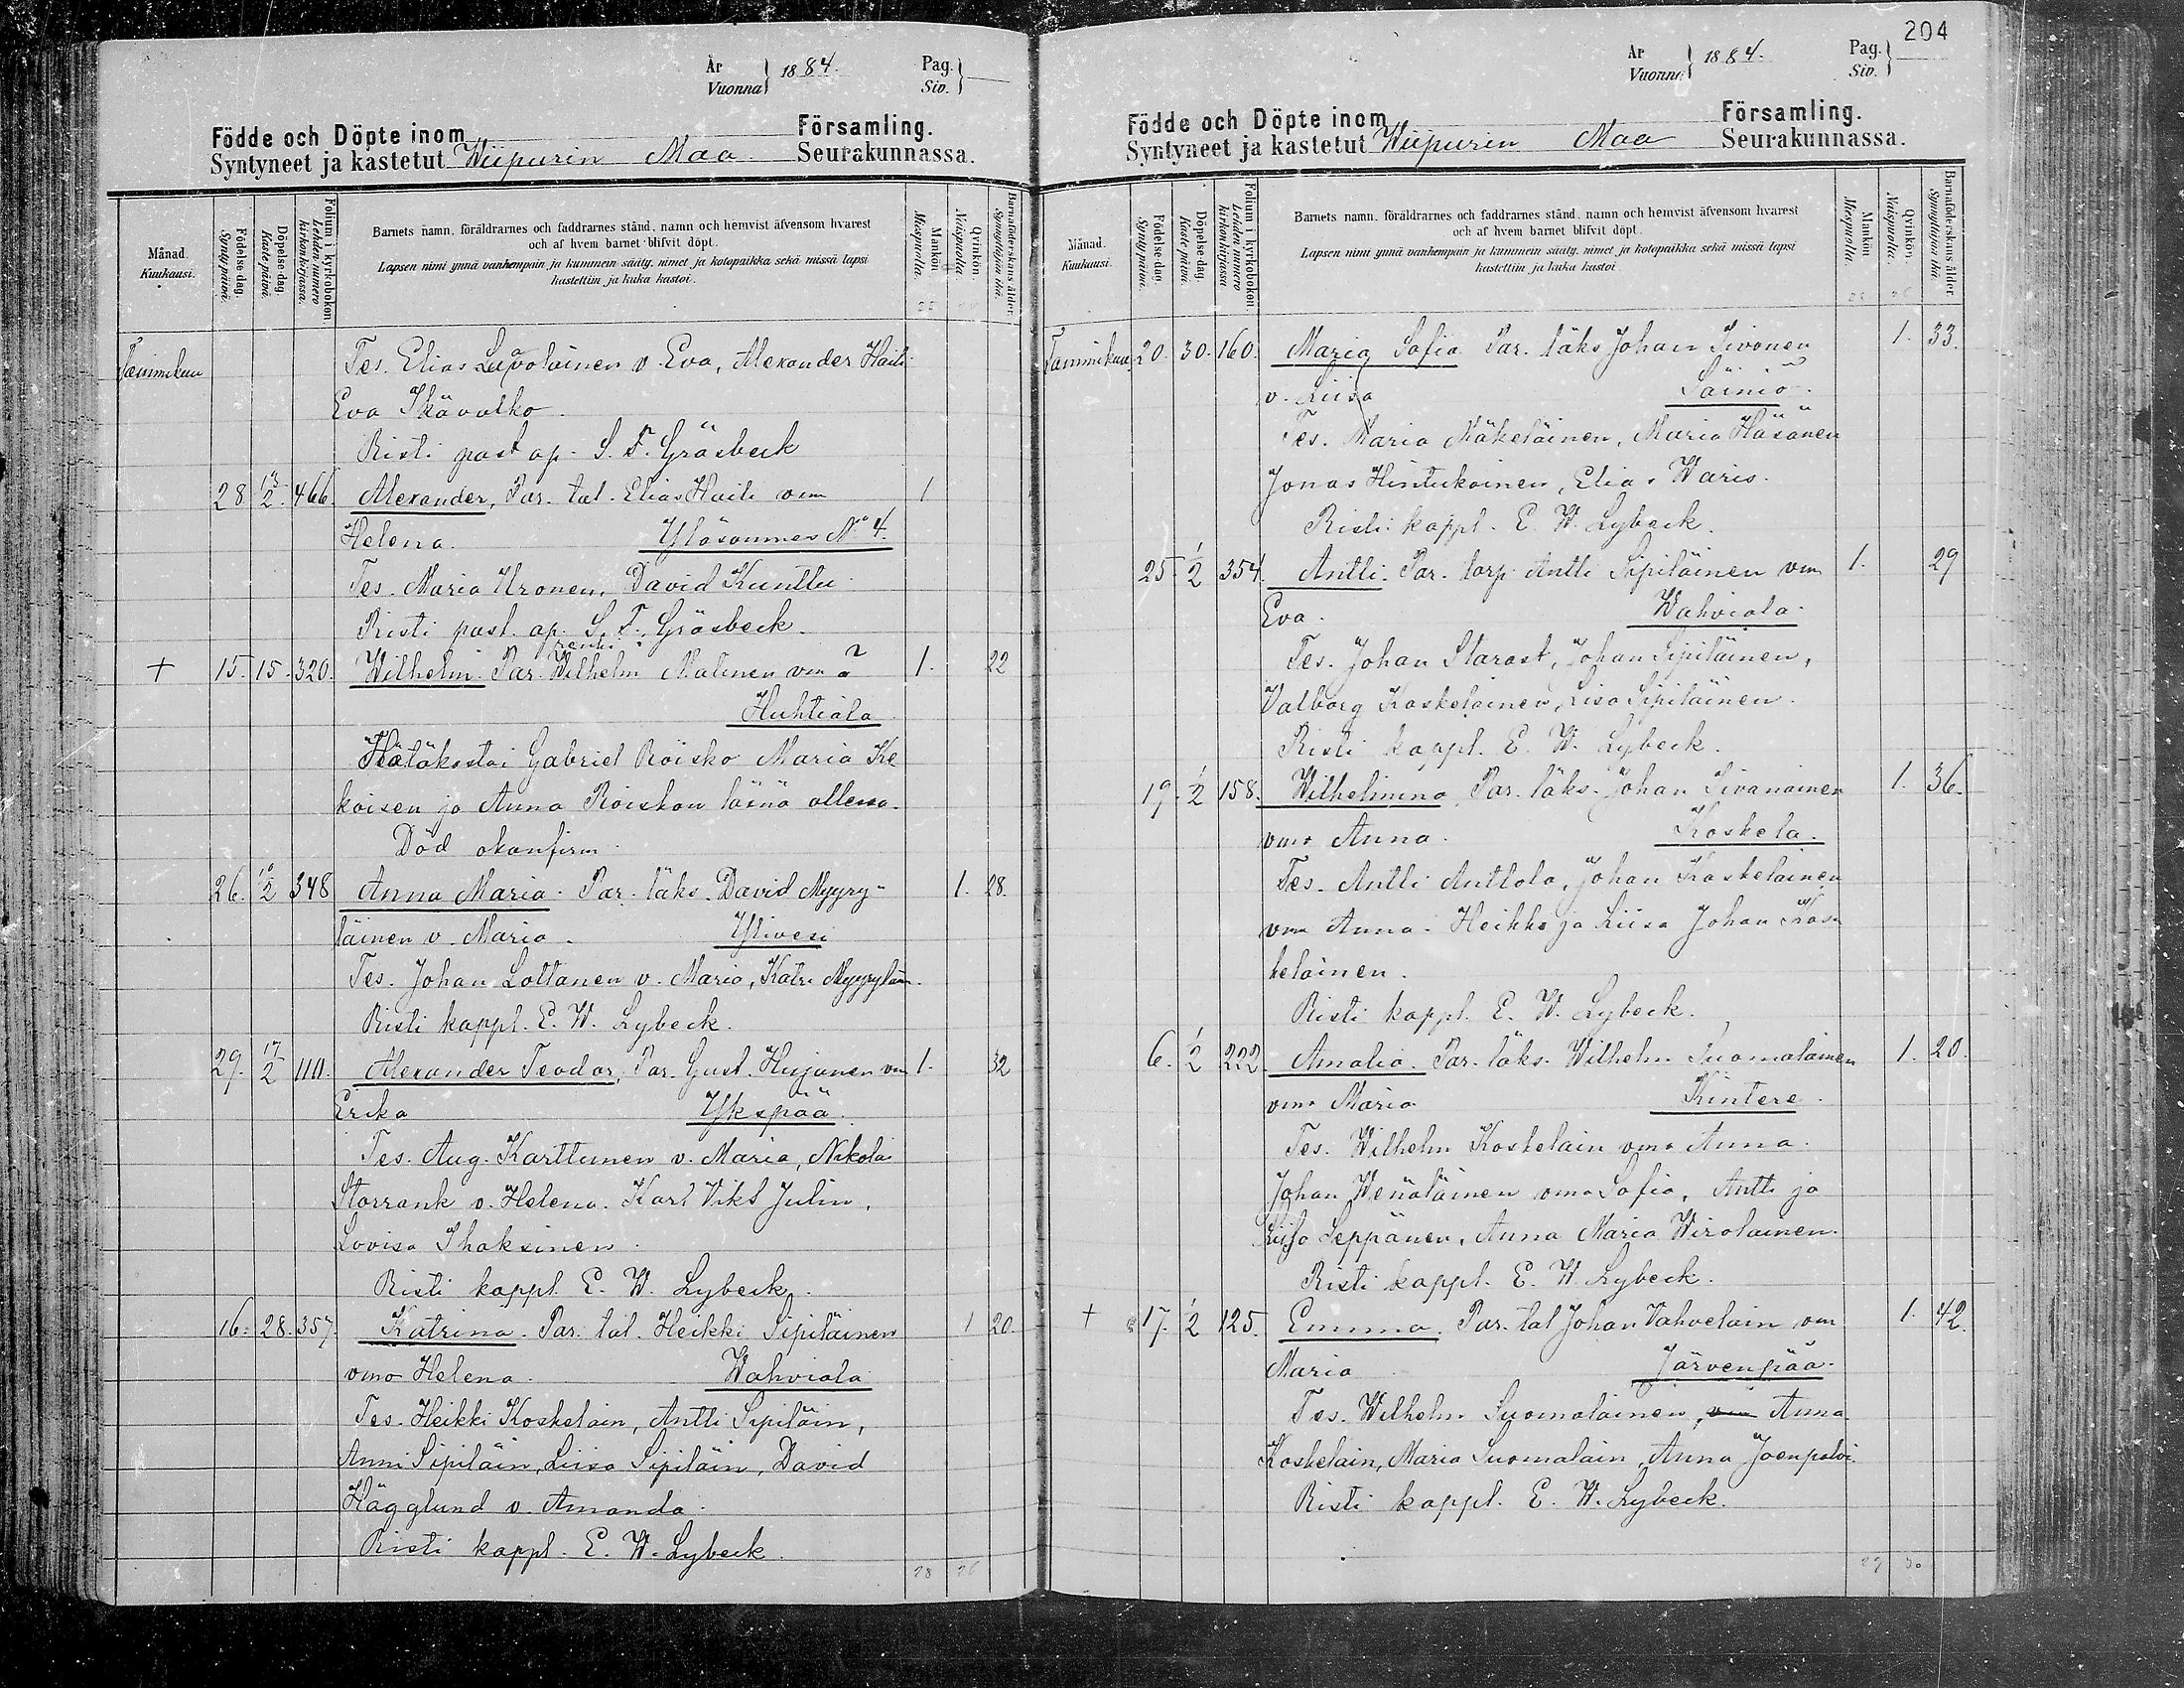 År
Vuonna } 1884.
Pag.
Siv. }
Födde och Döpte inom Församling.
Syntyneet ja kastetut Wiipurin Maa Seurakunnassa.
Månad.
Kuukausi.
Födelse dag.
Syntypäivä.
Döpelse dag.
Kaste päivä.
Folium i kyrkoboken.
Lehden numero kirkonkirjassa.
Barnets namn, föräldrarnes och faddrarnes stånd, namn och hemvist äfvensom hvarest
och af hvem barnet blifvit döpt.
Lapsen nimi ynnä vanhempain ja kummein sääty, nimet ja kotopaikka sekä missä lapsi
kastettiin ja kuka kastoi.
Mankön
Miespuolia.
Qvinkön
Naispuolia
Barnaföderskans ålder.
Synnyttäjän ikä.
Tammikuu Tes. Elias Lavolainen v. Eva, Alexander Haili
Eva Ikävalko.
Risti past. ap. S. F. Gräsbeck
28 13/2 466. Alexander, Par. tal. Elias Haili vm 1
Helena. Yläsommee No 4.
Tes. Maria Uronen, David Kunttu
Risti past. ap. S. F. Gräsbeck.
+ 15. 15. 320. Wilhelm. Par. renki Wilhelm Malinen vm ? 1. 22
Huhtiala
Hätäkastoi Gabriel Röisko Maria Ke
koisen ja Anna Röiskon läsnä ollessa.
Död okonfirm.
26. 10/2 348 Anna Maria. Par. läks. David Myyry- 1. 28.
läinen v. Maria. Ykivesi
Tes. Johan Lottanen v. Maria, Katri Myyryläin.
Risti kappl. E. W. Lybeck.
29. 17/2 110. Alexander Teodor, Par. Gust. Hujanen vm 1. 32
Erika Ykspää.
Tes. Aug. Karttunen v. Maria, Nikolai
Storrank v. Helena. Karl Vikt Julin,
Lovisa Ihaksinen.
Risti kappl. E. W. Lybeck.
16. 28. 357. Katrina. Par. tal. Heikki Sipiläinen 1 20.
vmo Helena. Wahviala
Tes. Heikki Koskelain, Antti Sipiläin,
Anni Sipiläin, Liisa Sipiläin, David
Hägglund v. Amanda.
Risti kappl. E. W. Lybeck.
28 26
204
År
Vuonna } 1884.
Pag.
Siv. }
Födde och Döpte inom Församling.
Syntyneet ja kastetut Wiipurin Maa Seurakunnassa.
Månad.
Kuukausi.
Födelse dag.
Syntypäivä.
Döpelse dag.
Kaste päivä.
Folium i kyrkoboken.
Lehden numero kirkonkirjassa.
Barnets namn, föräldrarnes och faddrarnes stånd, namn och hemvist äfvensom hvarest
och af hvem barnet blifvit döpt.
Lapsen nimi ynnä vanhempain ja kummein sääty, nimet ja kotopaikka sekä missä lapsi
kastettiin ja kuka kastoi.
Mankön
Miespuolia.
Qvinkön.
Naispuolia.
Barnaföderskans ålder.
Synnyttäjän ikä.
28 26
Tammikuu 20. 30. 160. Maria Sofia Par. läks Johan Sivonen 1. 33.
v. Liisa Säiniö.
Tes. Maria Mäkeläinen, Maria Häsänen
Jonas Hintukainen, Elias Waris.
Risti kappl. E. W. Lybeck.
25 1/2 354. Antti. Par. torp. Antti Sipiläinen vm 1. 29
Eva. Wahviala.
Tes. Johan Starast, Johan Sipiläinen,
Valborg Koskelainen, Lisa Sipiläinen.
Risti kappl. E. W. Lybeck.
19. 1/2 158. Wilhelmina, Par. läks. Johan Sivanainen 1. 36.
vmo Anna. Koskela.
Tes. Antti Anttola, Johan Koskelainen
vm Anna. Heikki ja Liisa Johan Kos-
kelainen.
Risti kappl. E. W. Lybeck.
6. 1/2 222. Amalia. Par. läks. Wilhelm Suomalainen 1. 20.
vmo Maria Kintere.
Tes. Wilhelm Koskelain vmo Anna.
Johan Wenäläinen vmo Sofia, Antti ja
Liisa Seppänen, Anna Maria Wirolainen.
Risti kappl. E. W. Lybeck.
+ 17. 1/2 125. Emma. Par. tal Johan Vahvelain vm 1. 42.
Maria Järvenpää.
Tes. Wilhelm Suomalainen, vm Anna
Koskelain, Maria Suomalain, Anna Joenpolvi
Risti kappl. E. W. Lybeck.
29 30